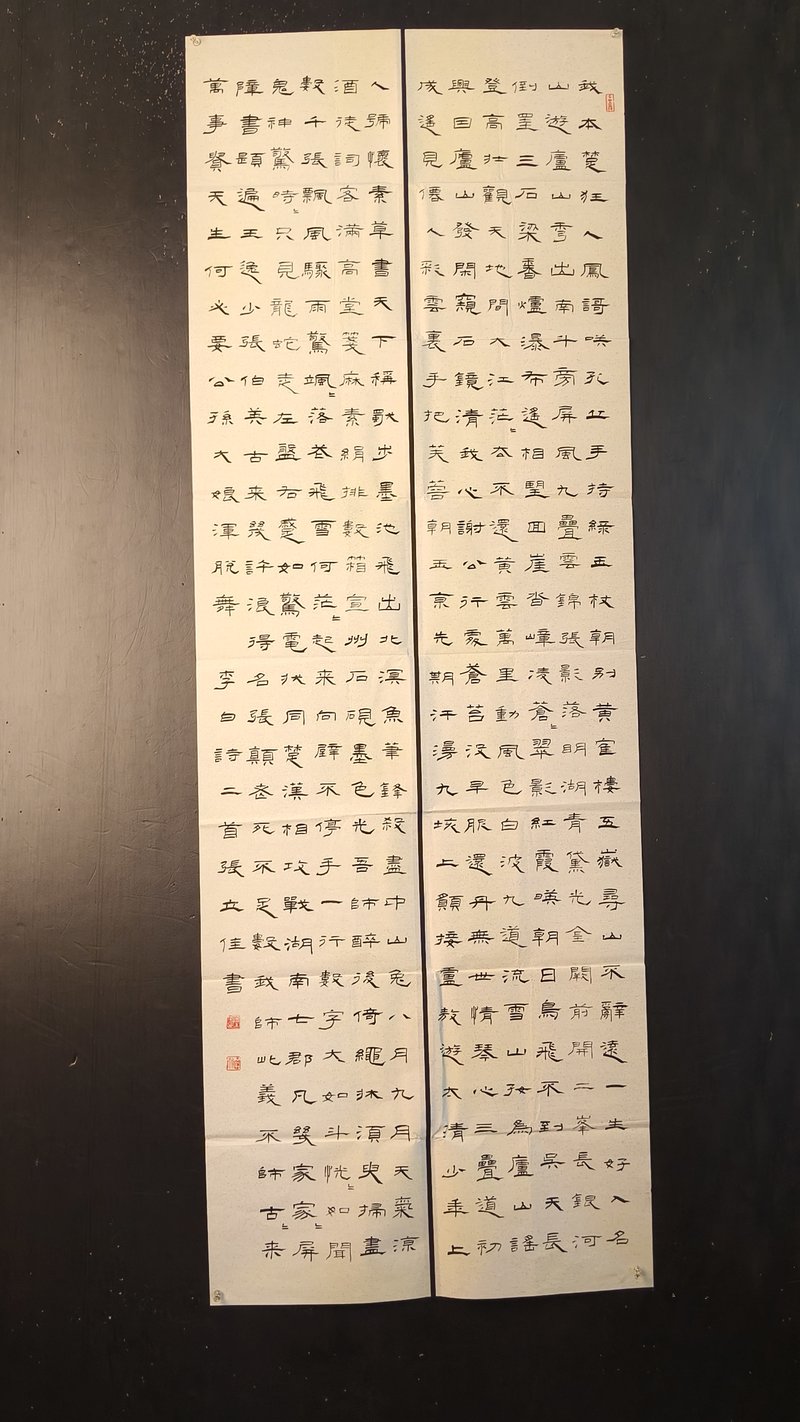 我本楚狂人鳳謌咲孔丘手持綠玉杖朝別黃寉樓五嶽尋山不辭遠一生好入名
山遊廬山秀出南斗旁屏風九疊雲錦張影落明湖青黛光金闕前開二峯長銀河
倒罣三石梁香爐瀑布遙相望回崖沓嶂凌蒼〻翠影紅霞暎朝日鳥飛不到吳天長
登高壯觀天地間大江茫〻去不還黃雲萬里動風色白波九道流雪山好為廬山謠
興因廬山發閑窺石鏡清我心謝公行處蒼苔沒早服還丹無世情琴心三疊道初
成遙見僊人彩雲裏手把芙蓉朝玉京先期汗漫九垓上願接盧敖遊太清少年上
人號懷素草書天下稱獨步墨池飛出北溟魚筆鋒殺盡中山兔八月九月天氣涼
酒徒詞客滿高堂箋麻素絹排數箱宣州石硯墨色光吾師醉後倚繩牀須臾掃盡
數千張飄風驟雨驚颯〻落花飛雪何茫〻起来向壁不停手一行數字大如斗怳〻如聞
鬼神驚時〻只見龍蛇走左盤右蹙如驚電狀同楚漢相攻戰湖南七郡凡幾家家〻屏
障書題遍王逸少張伯英古来幾許浪得名張顛老死不足數我師此義不師古〻来
萬事貴天生何必要公孫大娘渾脫舞 李白詩二首張立佳書